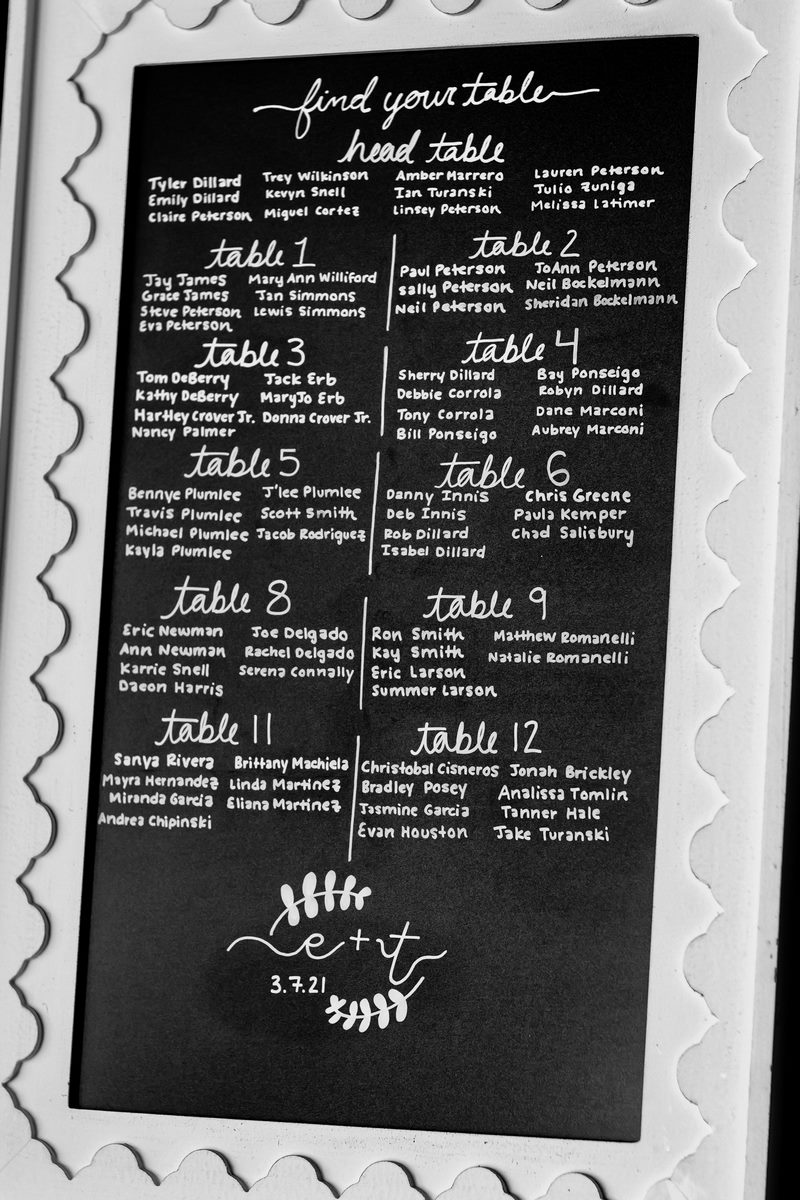 find your table
head table
Tyler Dillard Trey Wilkinson Amber Marrero Lauren Peterson
Emily Dillard Kevyn Snell Ian Turanski Tulio Zuniga
Claire Peterson Miguel Cortez Linsey Peterson Melissa Latimer
table 1
Jay James Mary Ann Williford
Grace James Jan Simmons
Steve Peterson Lewis Simmons
Eva Peterson
table 2
Paul Peterson JoAnn Peterson
Sally Peterson Neil Bockelmann
Neil Peterson Sheridan Bockelmann
table 3
Tom DeBerry Jack Erb
Kathy DeBerry MaryJo Erb
Hartley Crover Jr. Donna Crover Jr.
Nancy Palmer
table 4
Sherry Dillard Bay Ponseigo
Debbie Corrola Robyn Dillard
Tony Corrola Dane Marconi
Bill Ponseigo Aubrey Marconi
table 5
Bennye Plumlee J'lee Plumlee
Travis Plumlee Scott Smith
Michael Plumlee Jacob Rodriguez
Kayla Plumlee
table 6
Danny Innis Chris Greene
Deb Innis Paula Kemper
Rob Dillard Chad Salisbury
Isabel Dillard
table 8
Eric Newman Joe Delgado
Ann Newman Rachel Delgado
Karrie Snell Serena Connally
Daeon Harris
table 9
Ron Smith Matthew Romanelli
Kay Smith Natalie Romanelli
Eric Larson
Summer Larson
table 11
Sanya Rivera Brittany Machiela
Mayra Hernandez Linda Martinez
Miranda Garcia Eliana Martinez
Andrea Chipinski
table 12
Christobal Cisneros Jonah Brickley
Bradley Posey Analissa Tomlin
Jasmine Garcia Tanner Hale
Evan Houston Jake Turanski
e + t
3.7.21